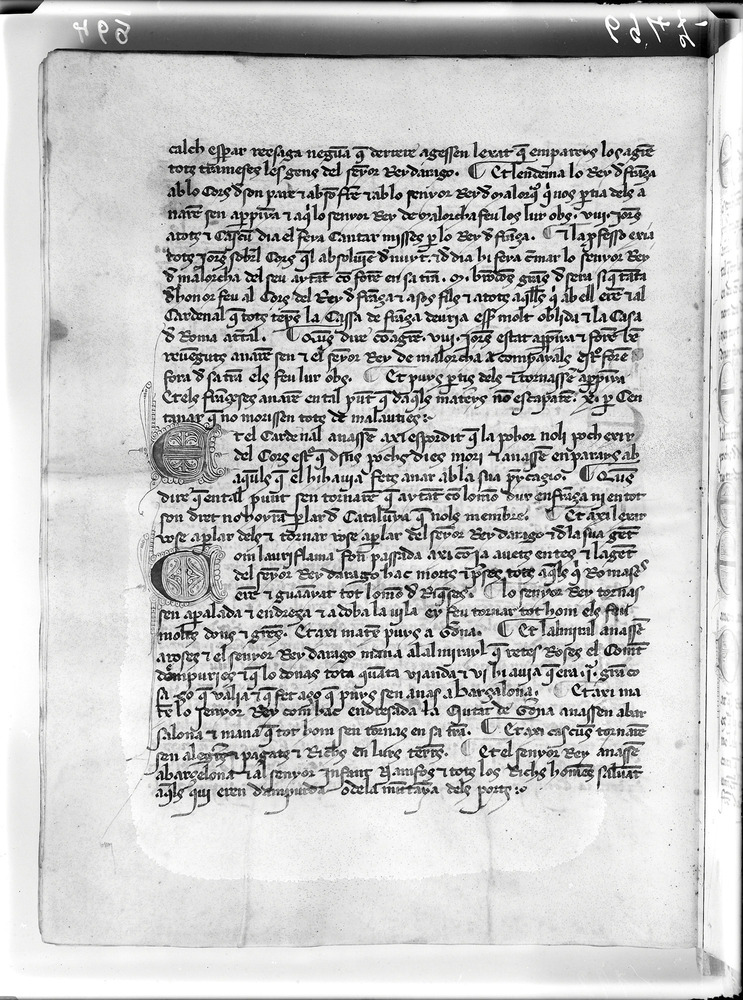 calch esp̃ar reesaga neguna q̃ derrere agessen lexat q̃ emparers los agrẽ
tots trameses les gens del seyor Rey darago. ¶ Et lendema lo Rey d frãça
ab lo Cors d son pare ⁊ ab son frẽ ⁊ ab lo senyor Rey d malorq̃ q̃ nos ptia dels a
narẽ sen appiya ⁊ aq̃ lo senyor Rey de malorcha feu los lur obs. viij. jorns
a tots ⁊ Cascũ dia el feya Cantar misses p̱ lo Rey d frãça. ¶ ⁊ la p̱fesso exia
tots jorns sobrl Cors q̃l absoluiẽ d nuyt. ⁊ d dia hi feya c̃mar lo senyor Rey
d malorcha del seu aytãt cõ forẽ en sa trã. M. brãdons grãs d sera si q̃ tãta
d honor feu al Cors del Rey d frãça ⁊ a sos fils ⁊ a tots aq̃lls q̃ ab ell erẽ ⁊ al
Cardenal q̃ tots tẽps la Cassa de frãça deuria esser molt oblida ⁊ la Casa
d Roma attal. ¶ Que us dire cõ agrẽ. viij. jorns estat appiya ⁊ forẽ bẽ
reuenguts anarẽ sen ⁊ el seyor Rey de malorcha acompayals
fora d sa trã els feu lur obs. ¶ Et puys ptis dels ⁊ tornassẽ appiya
Et els frãceses anarẽ en tal pũt q̃ d aq̃ls mateys no escaparẽ. x. p̱ Cen
tanar q̃ no morissen tots de malauties:~
Et el Cardenal anassẽ axi espordit q̃ la pahor noli poch exir
del Cors q̃ dĩs pochs dies mori ⁊ anassẽ en parays ab
aquels q̃ el hi hauia fets anar ab la sua p̱ycasio. ¶ Q̃us
dire q̃ en tal punt sen tornarẽ q̃ aytãt cõ lo mõ dur en frãça ni en tot
son dret no hoyrã parlar d Catalũya q̃ nols membre. ¶ Et axi lexar
vos e a plar dels ⁊ tornar vos e a plar del seyor Rey darago ⁊ d la sua gẽt
Com lauriflama fon passada axi com ja auets entes ⁊ la gẽt
del seyor Rey darago hac morts ⁊ p̱ses tots aq̃ls q̃ Romases
erẽ ⁊ guaayat tot lo mõ d Riq̃ses. ¶ lo senyor Rey tornas
sen a palada ⁊ endreça ⁊ adoba la vila ey feu tornar tot hom els feu
molts dons ⁊ grẽs. Et axi matẽ puys a Gõna. ¶ Et lalmiral anassẽ
a roses ⁊ el senyor Rey darago mana al almirayl q̃ retes Roses el Comt
dãpuries ⁊ q̃ lo donas tota quãta vianda ⁊ vi hi auia q̃ era .j. grã co
sa ço q̃ valia ⁊ q̃ fet aço q̃ puys sen anas a barçalona. ¶ Et axi ma
tex lo senyor Rey com hac endreçada la Ciutat de Gõna anassen a bar
salona ⁊ mana q̃ tot hom sen tornas en sa trã. ¶ Et axi cascus tornarẽ
sen alegrẽs ⁊ pagats ⁊ Richs en lurs terres. ¶ Et el senyor Rey anassẽ
a barcelona ⁊ al senyor infant Namfos ⁊ tots los Richs homẽs saluãt
aq̃ls qui eren dampurda o de la mũtaya dels ports:~